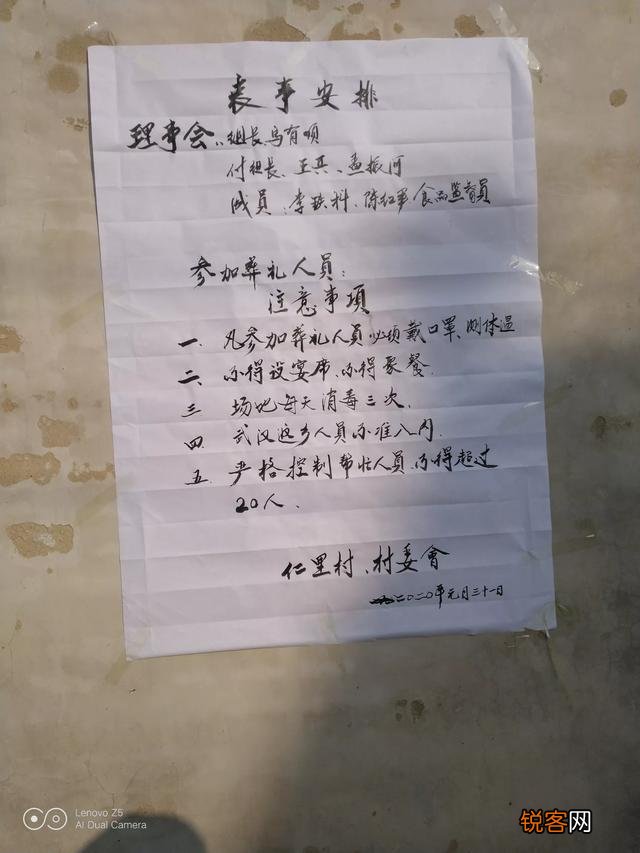 丧事安排
理事会:组长马有顺
付组长、王兵、孟振河
成员、李 科、陈红军食品监督员
参加葬礼人员:
注意事项
一、凡参加葬礼人员必须戴口罩、测体温
二、不得设宴席、不得聚餐.
三 场地每天消毒三次.
四 武汉返乡人员不准入内.
五 严格控制帮忙人员.不得超过
20人.
仁里村、村委會
二〇二〇年元月三十一日
Lenovo Z5
AI Dual Camera
锐客网